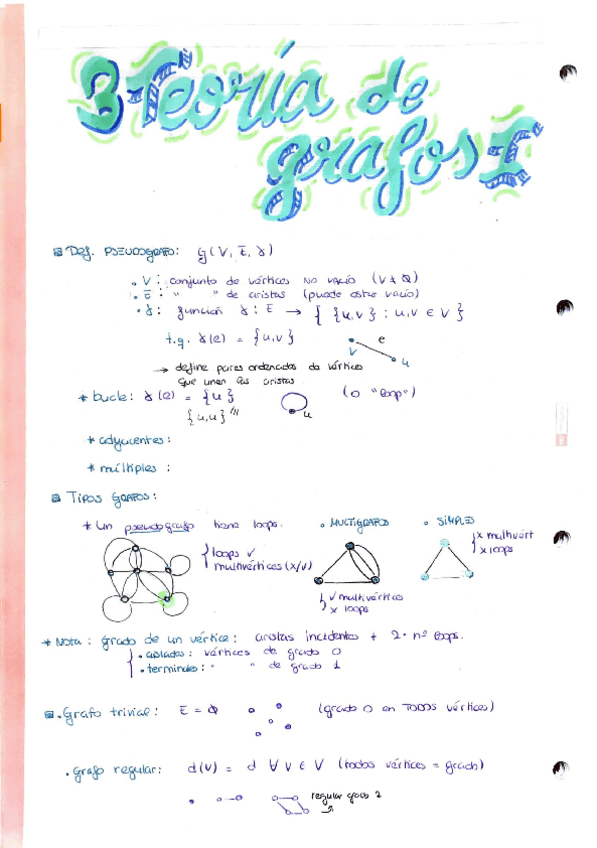 3-Teoría de
grafos I
Def. PSEUDOGRAFO: G(V, E, γ)
• V: conjunto de vértices NO VACÍO (V ≠ Ø)
• E: " " de aristas (puede estar vacío)
• γ: función γ: E → { {u,v} : u,v ∈ V }
t.q. γ(e) = {u,v}
v e u
→ define pares ordenados de vértices
que unen las aristas
* bucle: γ(e) = {u} (o "loop")
{u,u} u
* adyacentes:
* múltiples:
TIPOS GRAFOS:
* Un pseudografo tiene loops. • MULTIGRAFOS • SIMPLES
loops ✓
multivértices (x/✓)
x multivért
x loops
✓ multivértices
x loops
* Nota: grado de un vértice: aristas incidentes + 2· nº loops.
• aislados: vértices de grado 0
• terminales: " " de grado 1
• Grafo trivial: E = Ø (grado 0 en TODOS vértices)
• Grafo regular: d(v) = d ∀ v ∈ V (todos vértices = grado)
regular grado 2